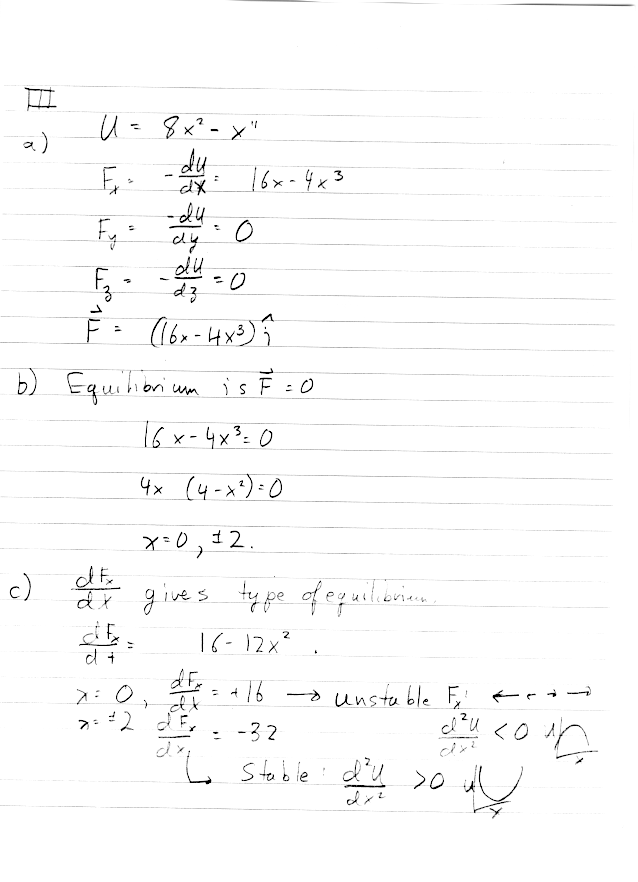 III
a) U = 8x² - x⁴
Fx = -du/dx = 16x - 4x³
Fy = -du/dy = 0
Fz = -du/dz = 0
F⃗ = (16x - 4x³) î
b) Equilibrium is F⃗ = 0
16x - 4x³ = 0
4x (4 - x²) = 0
x = 0, ±2.
c) dFx/dx gives type of equilibrium.
dFx/dt = 16 - 12x².
x = 0, dFx/dx = +16 → unstable Fx: ← ← → →
x = ±2 dFx/dx = -32 d²u/dx² < 0 u x
↳ Stable: d²u/dx² > 0 u x